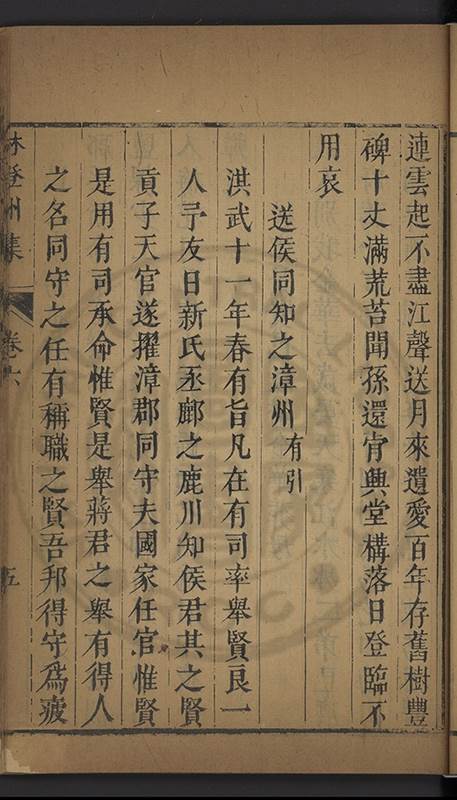 連雲起不盡江聲送月來遺愛百年存舊樹豐
碑十丈滿荒苔聞孫還肯興堂構落日登臨不
用哀
送侯同知之漳州有引
洪武十一年春有旨凡在有司率舉賢良一
人予友日新氏丞鄜之鹿川知侯君其之賢
貢子天官遂擢漳郡同守夫國家任官惟賢
是用有司承命惟賢是舉蔣君之舉有得人
之名同守之任有稱職之賢吾邦得守爲疲
林登州集 卷六 五